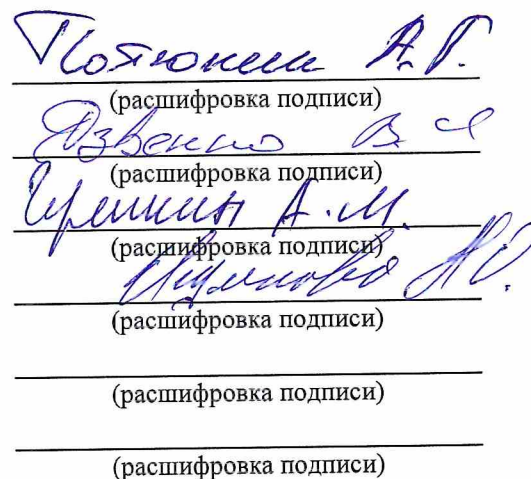 Потюнин А.Г.
(расшифровка подписи)
Язвенко В.Ч
(расшифровка подписи)
А.М.
(расшифровка подписи)
(расшифровка подписи)
(расшифровка подписи)
(расшифровка подписи)